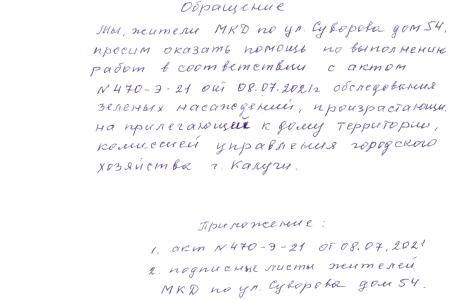 Обращение
Мы, жители МКД по ул. Суворова дом 54,
просим оказать помощь по выполнению
работ в соответствии с актом
N470-Э-21 от 08.07.2021г обследования
зеленых насаждений, произрастающи
на прилегающей к дому территории,
комиссией управления городского
хозяйства г. Калуги.
Приложение:
1. акт N470-Э-21 от 08.07.2021
2. подписные листы жителей
МКД по ул. Суворова дом 54.